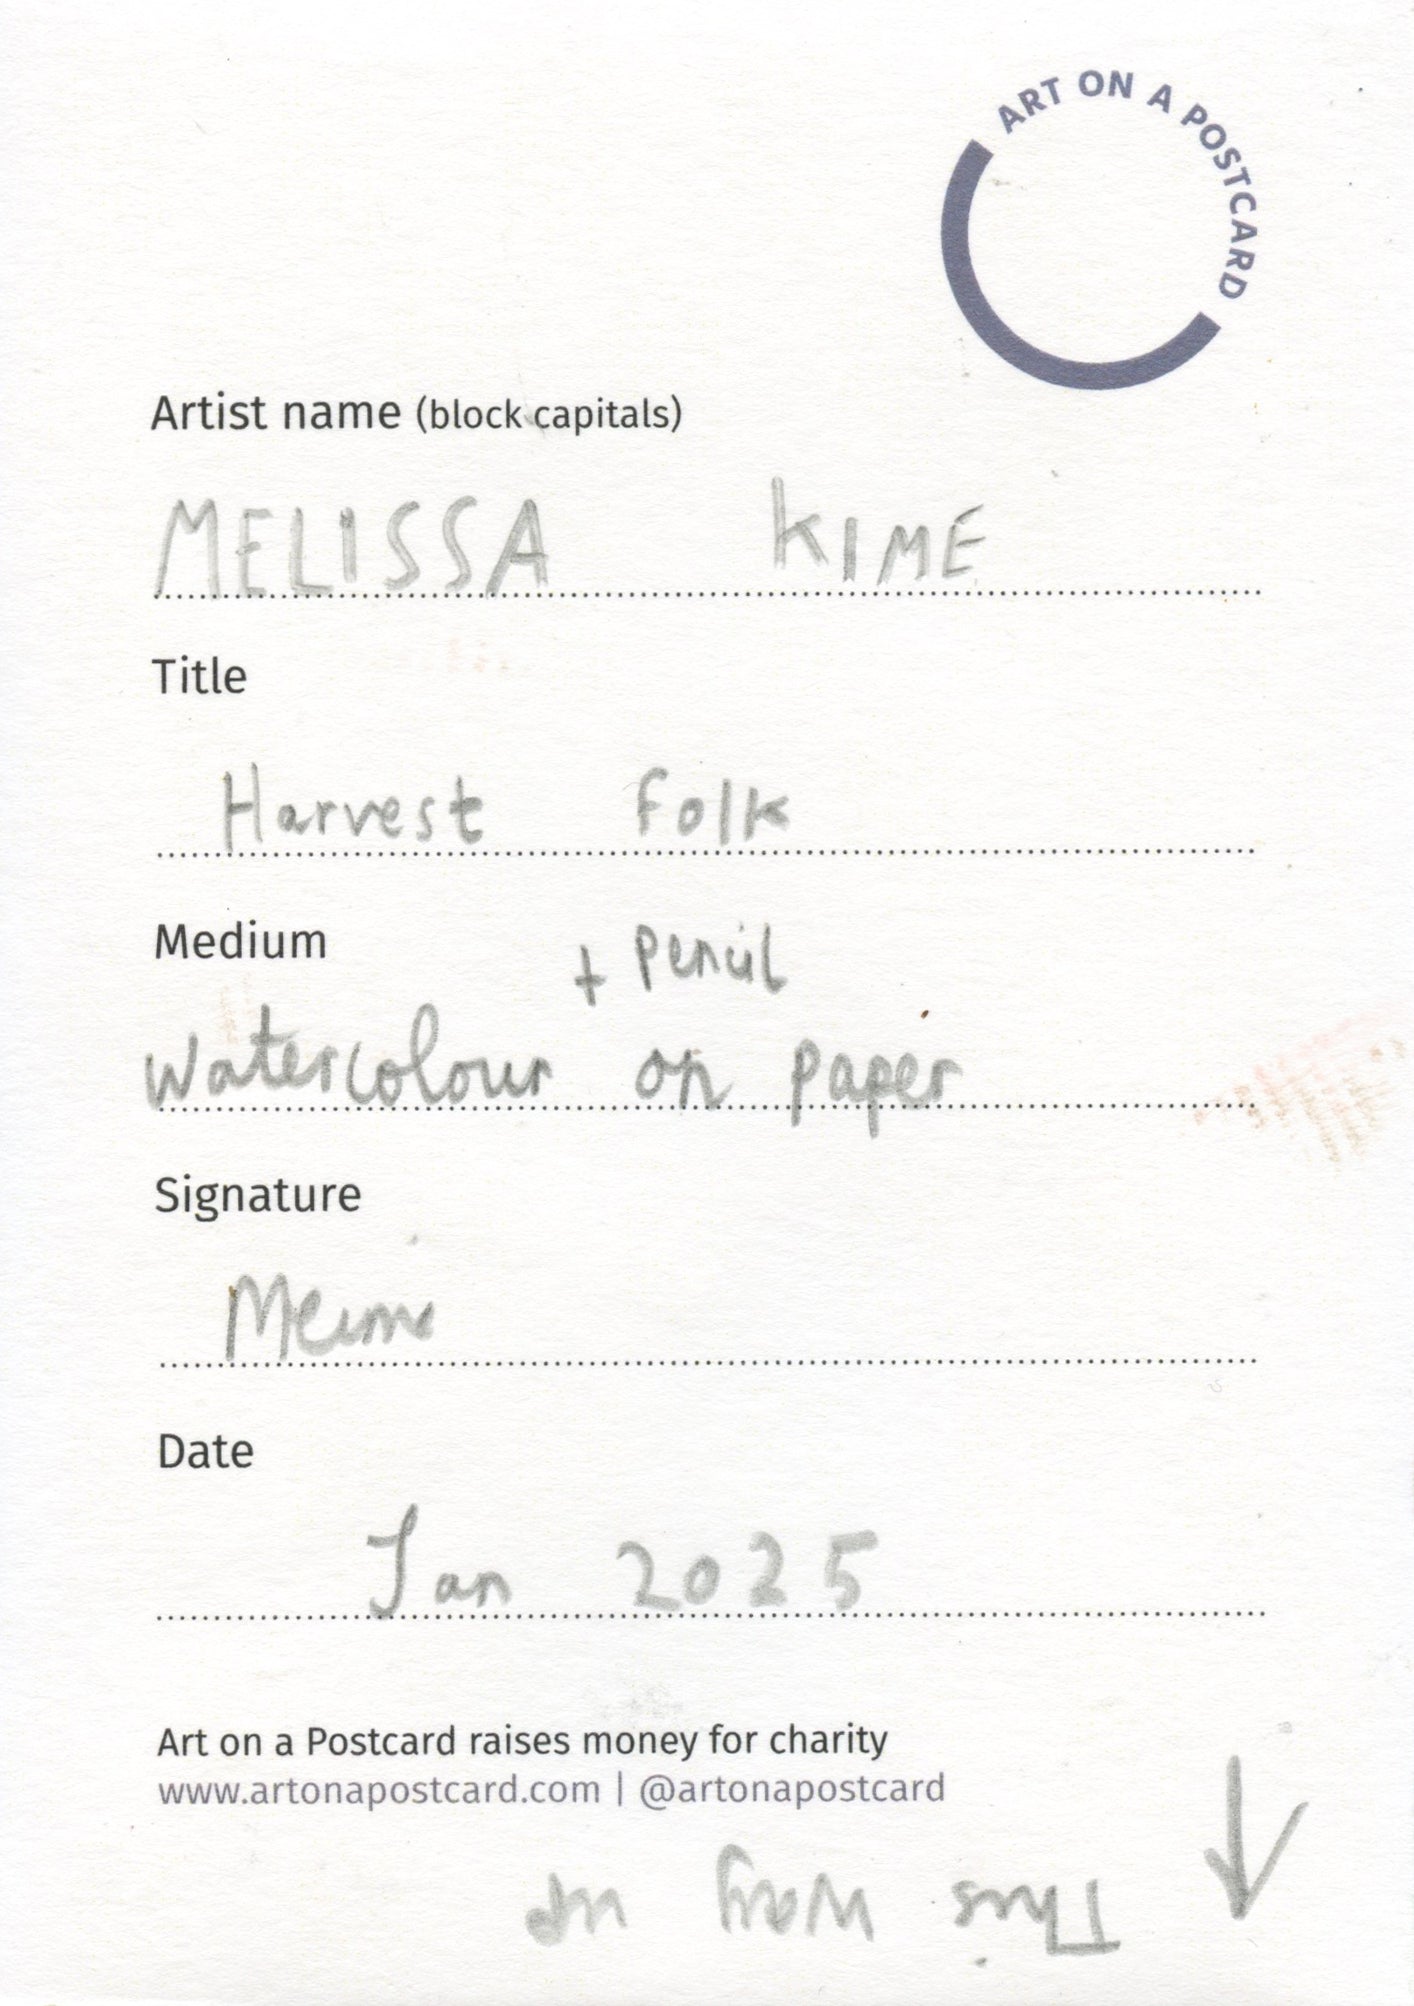 ART ON A POSTCARD
Artist name (block capitals)
MELISSA KIME
Title
Harvest Folk
Medium
+ Pencil
Watercolour on paper
Signature
Date
Jan 2025
Art on a Postcard raises money for charity
www.artonapostcard.com | @artonapostcard
This way up